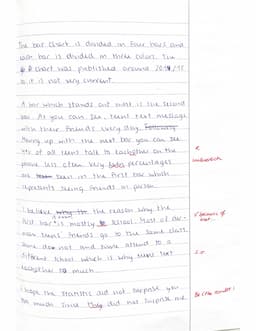 The bar chart is divided in four bars and
each bar is divided in three colors. The
chart was published around 2014/15
so it is not very current.
A bar which stands out most is the second
bar. As you can see, teens text message
with their friends every day. Following
Moving up with the next bar you can see
of all teens talk to eachother on the
phone less often. Very percentages
are seen in the first bar which
represents seeing friends in person.
R
I believe the reason why the
first bar is mostly school. Most of
teens' friends go to the same class.
Some do not and some attend to a
different school which is why teens text
eachother so much.
I hope the statistic did not surprise you
too much since they did not surprise me